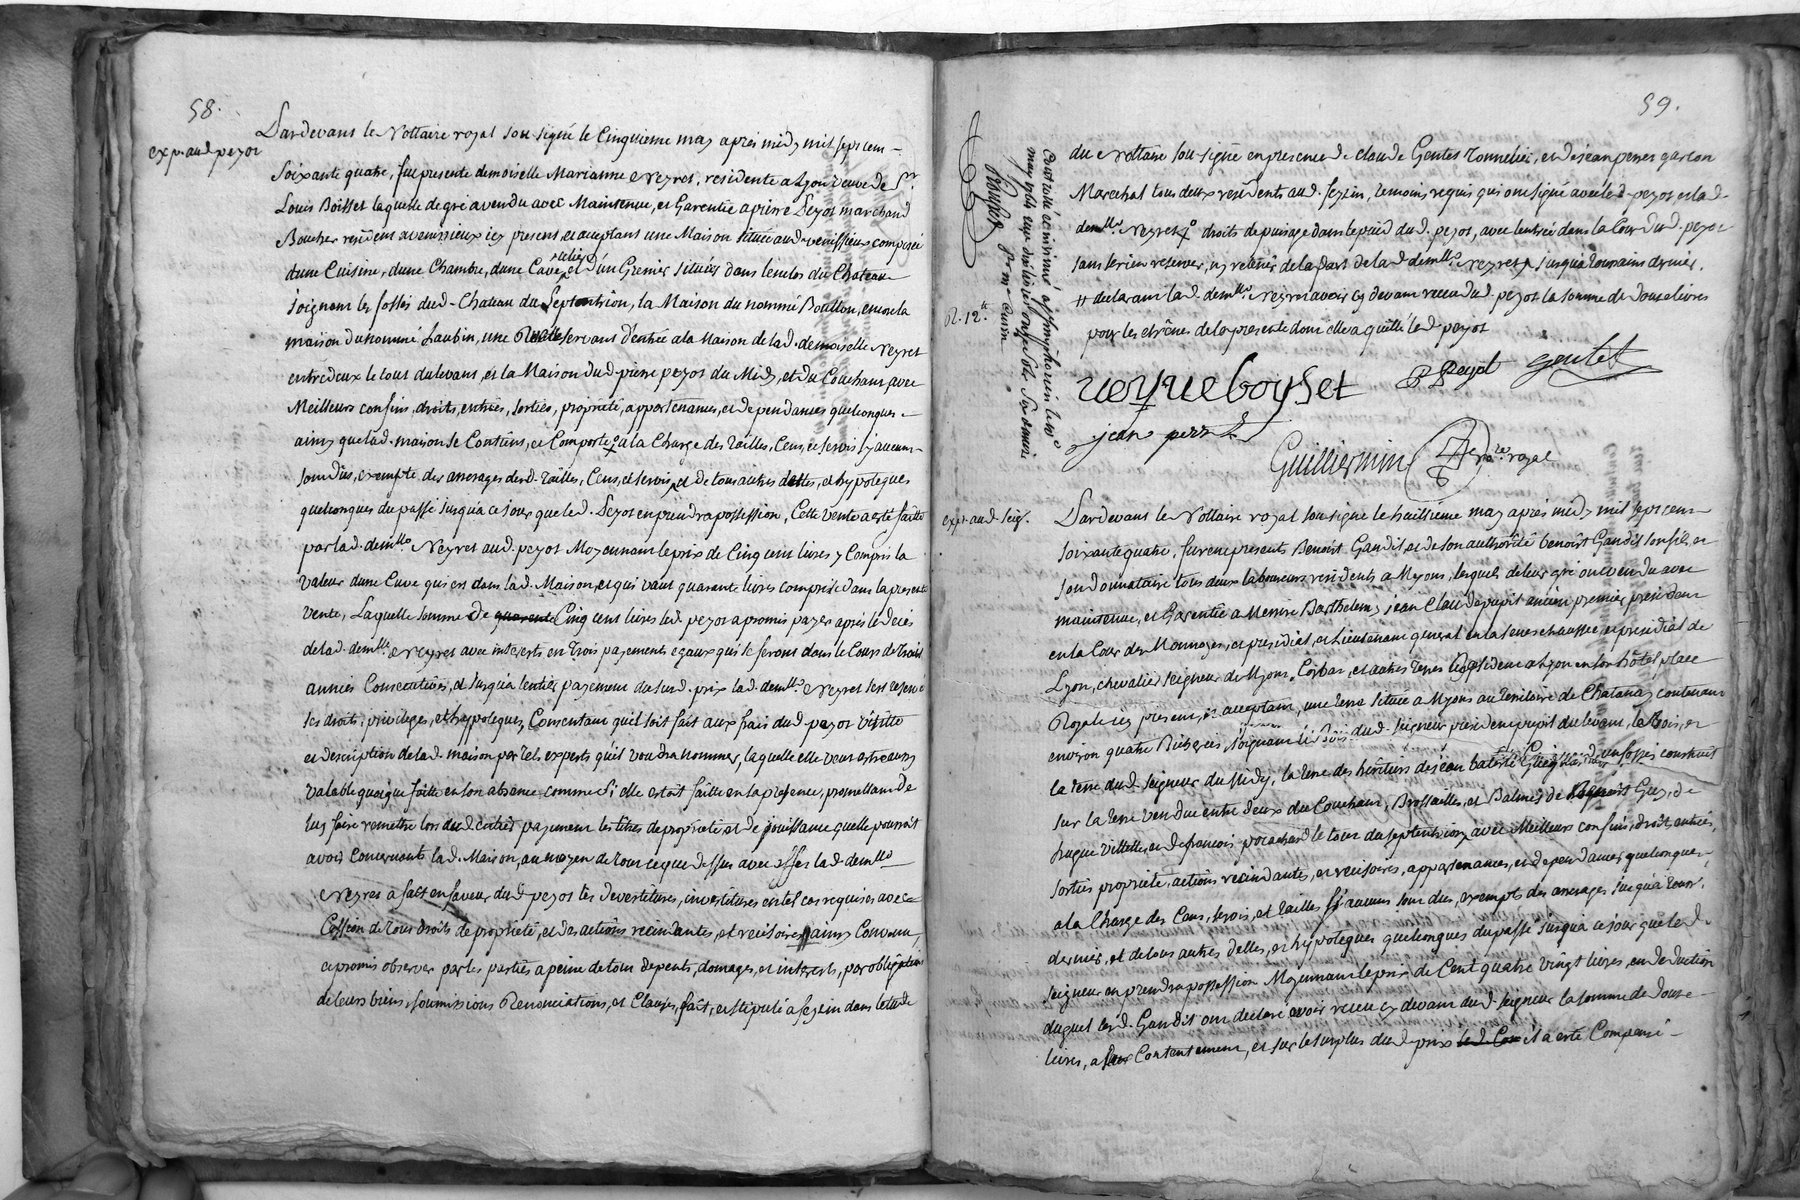 58.
exp. aud. peyot
Pardevant le Nottaire royal sousigné le Cinquieme may après midy mil sept cent
Soixante quatre, fut presente demoiselle Marianne Neyret, residente a Lyon veuve de Sr.
Louis Boisset laquelle de gré a vendu avec Maintenue, et Garentie a pierre Peyot marchand
Boucher resident a venissieux icy present, et acceptant une Maison située aud. venissieux composée
dune Cuisine, dune Chambre, dune Cave, celier, et d'un Grenier situés dans lenclos du Chateau
Joignant les fossés dud. Chateau du Septentrion, la Maison du nommé Bouillon, encore la
maison du nommé Laubin, une Ruelle servant d'entrée a la Maison de lad. demoiselle Neyret
entre deux le tout du levant, et la Maison dud. pierre peyot du Midy, et du Couchant avec
Meilleurs confins, droits, entrées, sorties, propriété, appartenances, et dependances quelconques
ainsy que lad. maison se Contient, et Comporte a la Charge des Tailles, Cens, et servis sy aucuns
sont dus, exempte des arrerages desd. Tailles, Cens, et servis, et de tous autres dettes, et hypoteques
quelconques du passé jusqu'a ce jour que led. Peyot en prendra possession, Cette vente a esté faitte
par lad. demlle Neyret aud. peyot Moyennant le prix de Cinq cent livres y Compris la
valeur dune Cuve qui est dans lad. Maison, et qui vaut quarante livres comprise dans la presente
vente, Laquelle somme de quarante Cinq cent livres led. peyot a promis payer après le decés
de lad. demlle Neyret avec interests en Trois payements egaux qui se feront dans le Cours de Trois
années Consecutives, et jusqu'a l'entier payement du susd. prix lad. demlle Neyret sest reservé
ses droits, privileges, et hypoteques, Consentant quil soit fait aux frais dud. peyot visitte
et description de lad. maison par tels experts qu'il voudra nommer, laquelle elle veut estre aussy
valable quoique faitte en son absence comme si elle estoit faitte en sa presence, promettant de
luy faire remettre lors dud. entier payement les titres de propriété, et de jouissance quelle pourroit
avoir Concernants lad. Maison, au moyen de tout ce que dessus avec effet lad. demlle
Neyret a fait en faveur dud. peyot les devestitures, investitures en tel cas requises avec
Cession de tous droits de propriété, et des actions rescindantes, et rescisoires // ainsy Convenu,
et promis observer par les parties a peine de tous depents, domages, et interests, par obligations
de leurs biens, soumissions Renonciations, et Clauses, fait, et stipulé a feyzin dans letude
59.
du Nottaire sousigné en presence de claude Gentet Tonnelier, et de jean perret garcon
Marechal tous deux residents aud. feyzin, temoins requis qui ont signé avec led. peyot et lad.
demlle Neyret droits de puisage dans le puid dud. peyot, avec l'entrée dans la Cour dud. peyot
sans se rien reserver, ny retenir de la part de lad. demlle Neyret jusqu'a Tout ains dernier.
// declarant lad. demlle Neyret avoir cy devant receu dud. peyot la somme de douze livres
pour les etrênes de la presente dont elle a quitté led. peyot
neyret boysset P Peyot gentet
jean perret
Guilliermin Nore. royal
R. 12 #.
exp. aud. seigr.
Pardevant le Nottaire royal sousigné le huittieme may après midy mil sept cent
soixante quatre, furent presents Benoist Gandil, et de son authorité Benoist Gandil son fils, et
son donnataire tous deux laboureurs residents a Myons, lesquels de leur gré ont vendu avec
maintenue, et Garentie a Messire Barthelemy jean Claude pupil ancien premier president
en la Cour des Monnoyes, et presidial, et Lieutenant general en la seneschaussée, et presidial de
Lyon, chevalier seigneur de Myons, Corbas, et autres terres resident a Lyon en son hôtel place
Royale icy present, et acceptant, une terre située a Myons au Territoire de Chatanay contenant
environ quatre Bicherées joignant le Bois dud. seigneur president pupil du levant, le Bois, et
la Terre dud. seigneur du Midy, la terre des héritiers de jean un fossé construit
sur la terre vendue entre deux du Couchant, Brossailles, et Balmes de Guy, de
hugue Villette, et de francois le tout du septentrion, avec Meilleurs confins, droit, entrées,
sorties propriété, actions rescindantes, et rescisoires, appartenances, et dependances quelconques
a la Charge des Cens, servis, et Tailles sy aucuns sont dus, exempt des arrerages jusqu'a Tous.
dernier, et de tous autres dettes, et hypoteques quelconques du passé jusqu'a ce jour que led.
seigneur en prendra possession Moyennant le prix de Cent quatre vingt livres, en deduction
duquel lesd. Gandil ont declaré avoir receu cy devant dud. seigneur la somme de douze
livres, a leur Contentement, et sur le surplus dud. prix il a esté Compensé